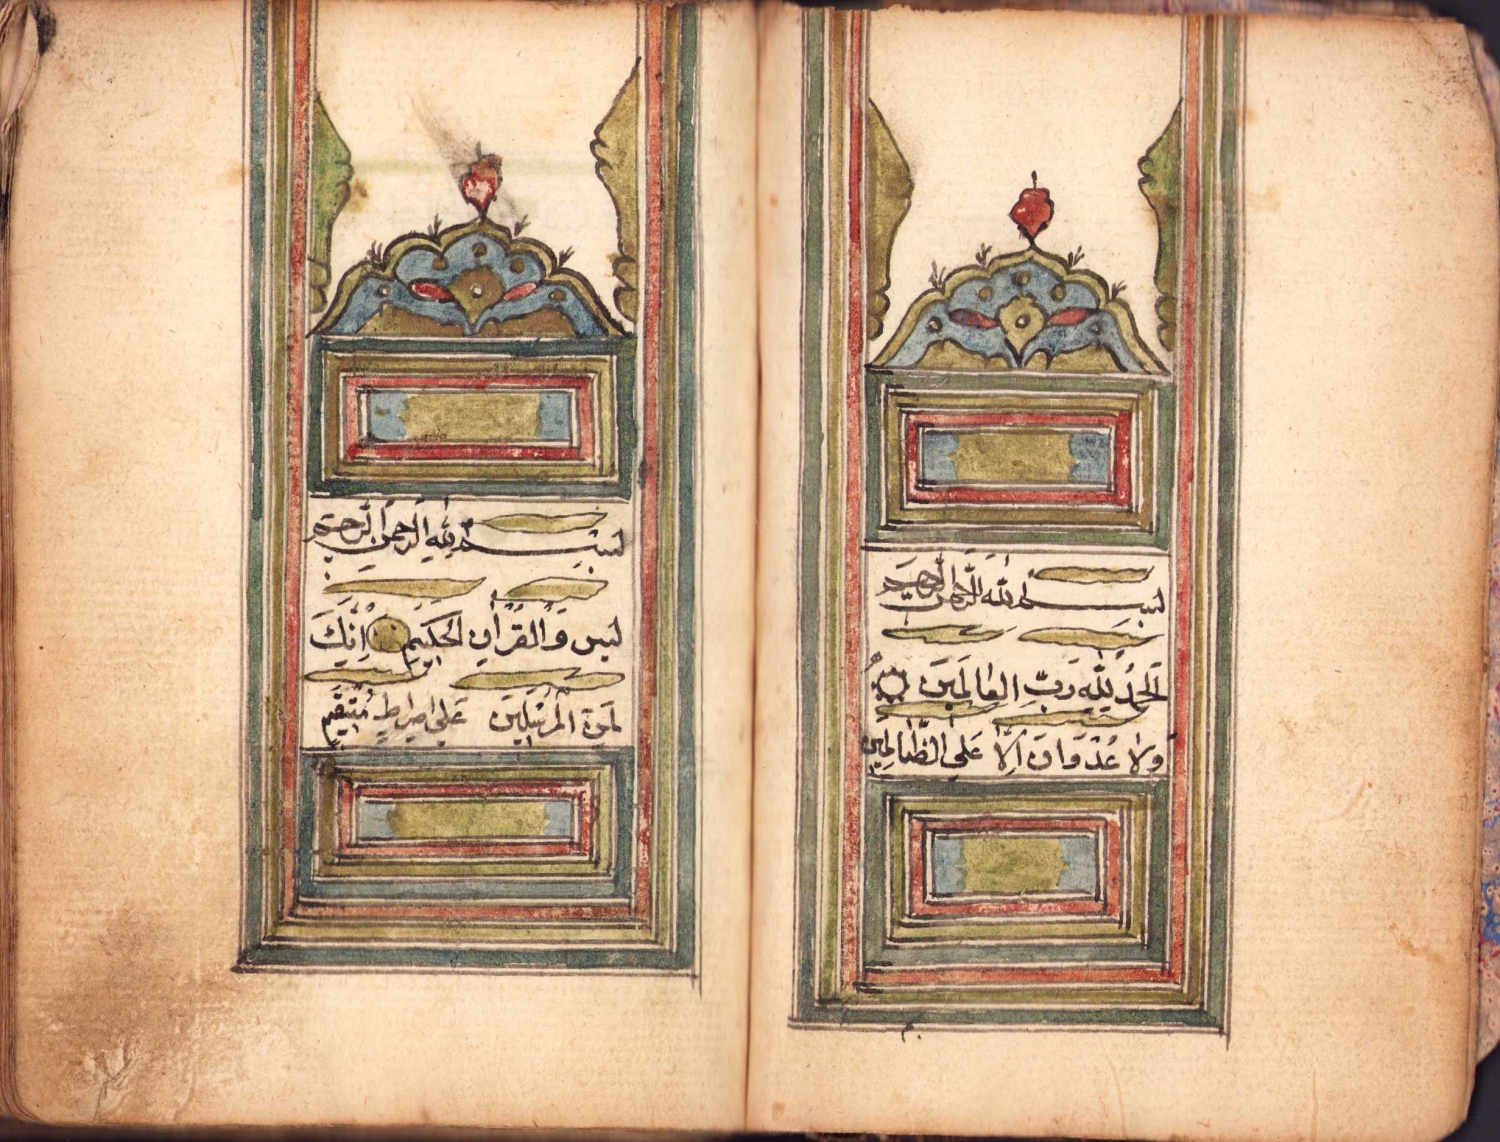 بسم الله الرحمن الرحيم
الحمد لله رب العالمين
ولا عدوان الا على الظالمين
بسم الله الرحمن الرحيم
يس والقرآن الحكيم انك
لمن المرسلين على صراط مستقيم